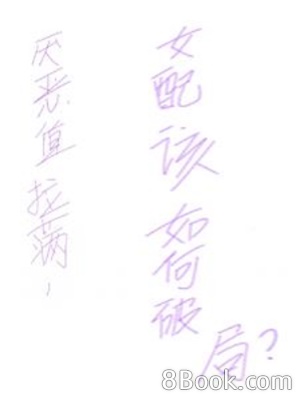 厌恶值拉满，
女配该如何破局？
8Book.com